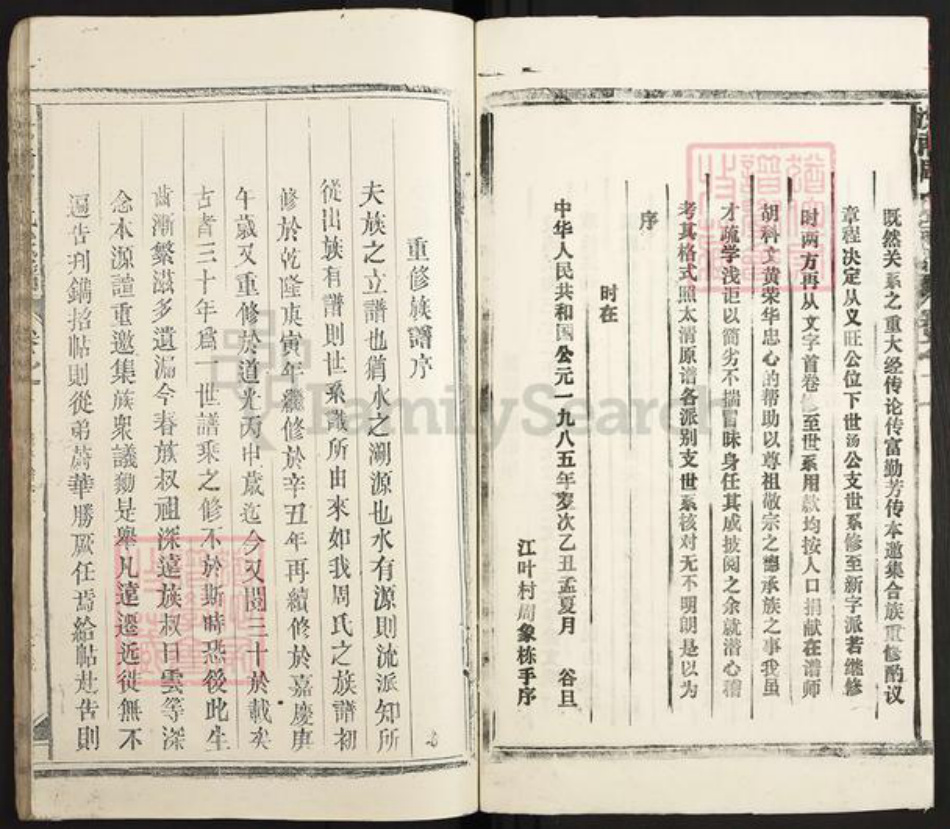 既然关系之重大经传论传富勤芳传本邀集合族重修酌议
章程决定从义旺公位下世汤公支世系修至新字派若继修
时两方再从文字首卷修至世系用款均按人口捐献在谱师
胡科文黄荣华忠心的帮助以尊祖敬宗之德承族之事我虽
才疏学浅讵以简劣不揣冒昧身任其成披阅之余就潜心稽
考其格式照太清原谱各派别支世系核对无不明朗是以为
序
时在
中华人民共和国公元一九八五年岁次乙丑孟夏月 谷旦
江叶村周象栋手序
重修族譜序
夫族之立譜也猶水之溯源也水有源則沈派知所
從出族有譜則世系識所由來如我周氏之族譜初
修於乾隆庚寅年繼修於辛丑年再續修於嘉慶庚
午歲又重修於道光丙申歲迄今又閱三十於載矣
古者三十年爲一世譜乘之修不於斯時恐後此生
齒漸繁滋多遺漏今春族叔祖深遠族叔日雲等深
念本源譜重邀集族衆議勷是舉凡遠遷近徙無不
遍告刋鐫招帖則從弟蔚華勝厥任焉給帖赴告則
FamilySearch